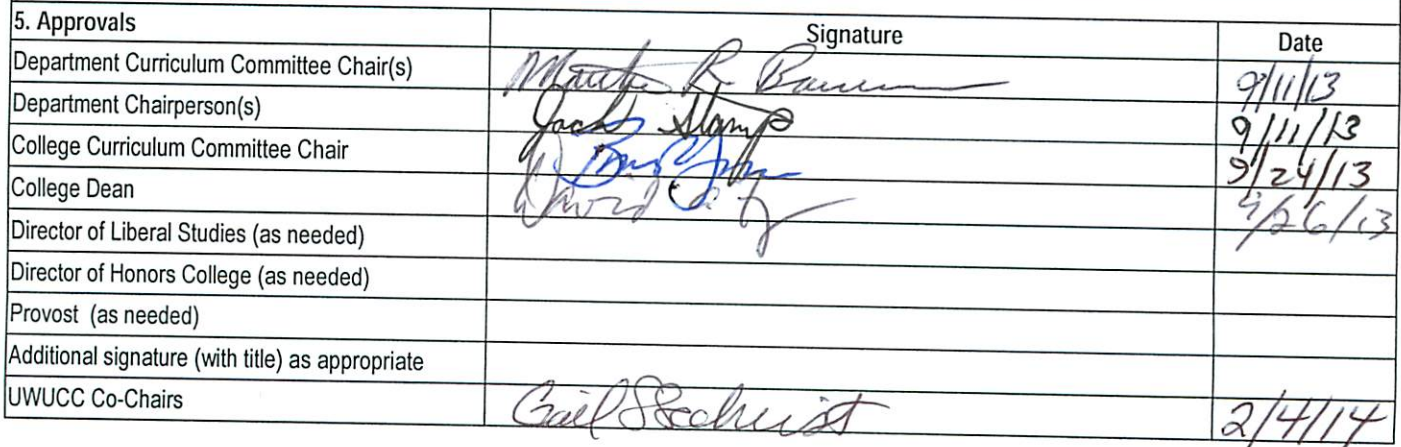 5. Approvals Signature Date
Department Curriculum Committee Chair(s) R 9/11/13
Department Chairperson(s) 9/11/13
College Curriculum Committee Chair 9/24/13
College Dean David /26/13
Director of Liberal Studies (as needed)
Director of Honors College (as needed)
Provost (as needed)
Additional signature (with title) as appropriate
UWUCC Co-Chairs Gail S Sechrist 2/4/14